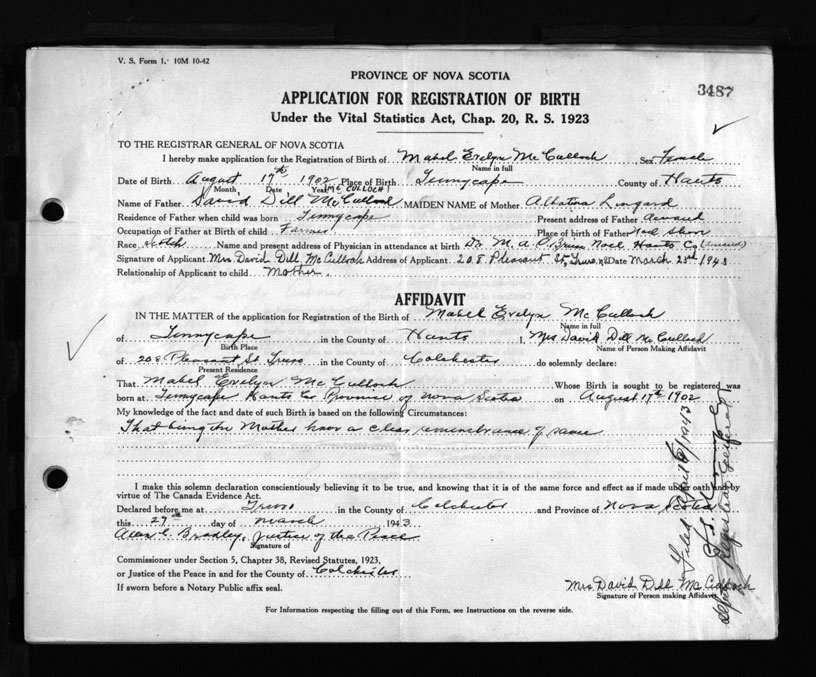 V. S. Form 1. 10M 10-42
PROVINCE OF NOVA SCOTIA
3487
APPLICATION FOR REGISTRATION OF BIRTH
Under the Vital Statistics Act, Chap. 20, R. S. 1923
TO THE REGISTRAR GENERAL OF NOVA SCOTIA
I hereby make application for the Registration of Birth of Mabel Evelyn McCulloch Sex Female
Name in full
Date of Birth August 17th 1902 Place of Birth Tennycape County of Hants
Month Date Year (McCULLOCH)
Name of Father David Dill McCulloch MAIDEN NAME of Mother Lingard
Residence of Father when child was born Tennycape Present address of Father
Occupation of Father at Birth of child Farmer Place of birth of Father Noel Shore
Race Scotch Name and present address of Physician in attendance at birth Dr. M. A. O'Brien Noel Hants Co
Signature of Applicant Mrs David Dill McCulloch Address of Applicant 208 Pleasant St, Truro, NS Date March 23rd 1943
Relationship of Applicant to child Mother
AFFIDAVIT
IN THE MATTER of the application for Registration of the Birth of Mabel Evelyn McCulloch
Name in full
of Tennycape in the County of Hants I, Mrs David Dill McCulloch
Birth Place Name of Person Making Affidavit
of 208 Pleasant St Truro in the County of Colchester do solemnly declare:
Present Residence
That Mabel Evelyn McCulloch Whose Birth is sought to be registered was
born at Tennycape Hants Co Province of Nova Scotia on August 17th 1902
My knowledge of the fact and date of such Birth is based on the following Circumstances:
That being the Mother have a clear remembrance of same
I make this solemn declaration conscientiously believing it to be true, and knowing that it is of the same force and effect as if made under oath and by
virtue of The Canada Evidence Act.
Declared before me at Truro in the County of Colchester and Province of Nova Scotia
this 27th day of March 1943
Bradley, Justice of the Peace
Signature of
Commissioner under Section 5, Chapter 38, Revised Statutes, 1923,
or Justice of the Peace in and for the County of Colchester
If sworn before a Notary Public affix seal.
Mrs David Dill McCulloch
Signature of Person making Affidavit
For Information respecting the filling out of this Form, see Instructions on the reverse side.
Filed April 6/1943
Deputy Registrar General